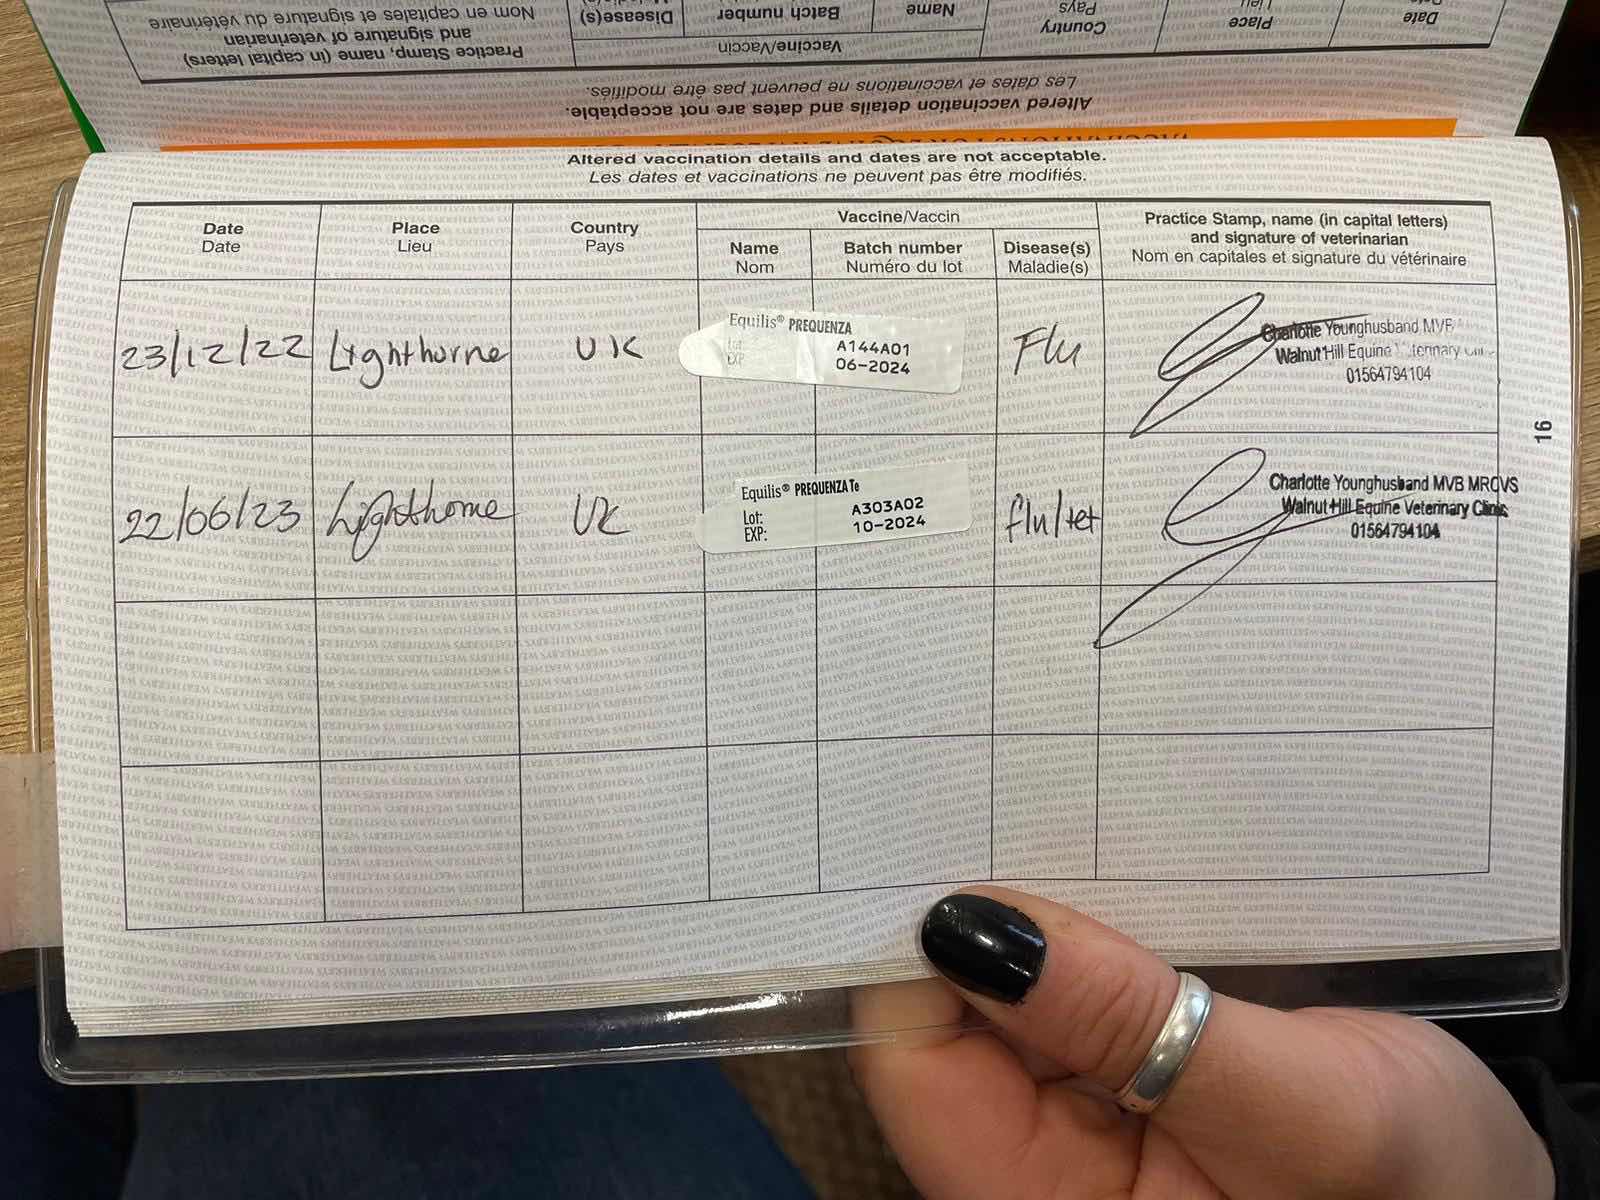 Nom en capitales et signature du vétérinaire
and signature of veterinarian
Practice Stamp, name (in capital letters)
Disease(s)
Batch number
Name
Vaccine/Vaccin
Country
Pays
Place
Date
Les dates et vaccinations ne peuvent pas être modifiés.
Altered vaccination details and dates are not acceptable.
Altered vaccination details and dates are not acceptable.
Les dates et vaccinations ne peuvent pas être modifiés.
Date
Date
Place
Lieu
Country
Pays
Vaccine/Vaccin
Name
Nom
Batch number
Numéro du lot
Disease(s)
Maladie(s)
Practice Stamp, name (in capital letters)
and signature of veterinarian
Nom en capitales et signature du vétérinaire
23/12/22
Lighthorne
UK
Equilis® PREQUENZA
Lot: A144A01
EXP 06-2024
Flu
Charlotte Younghusband MVB
Walnut Hill Equine Veterinary Clinic
01564794104
22/06/23
Lighthorne
UK
Equilis® PREQUENZA Te
Lot: A303A02
EXP: 10-2024
flu/tet
Charlotte Younghusband MVB MRCVS
Walnut Hill Equine Veterinary Clinic
01564794104
16